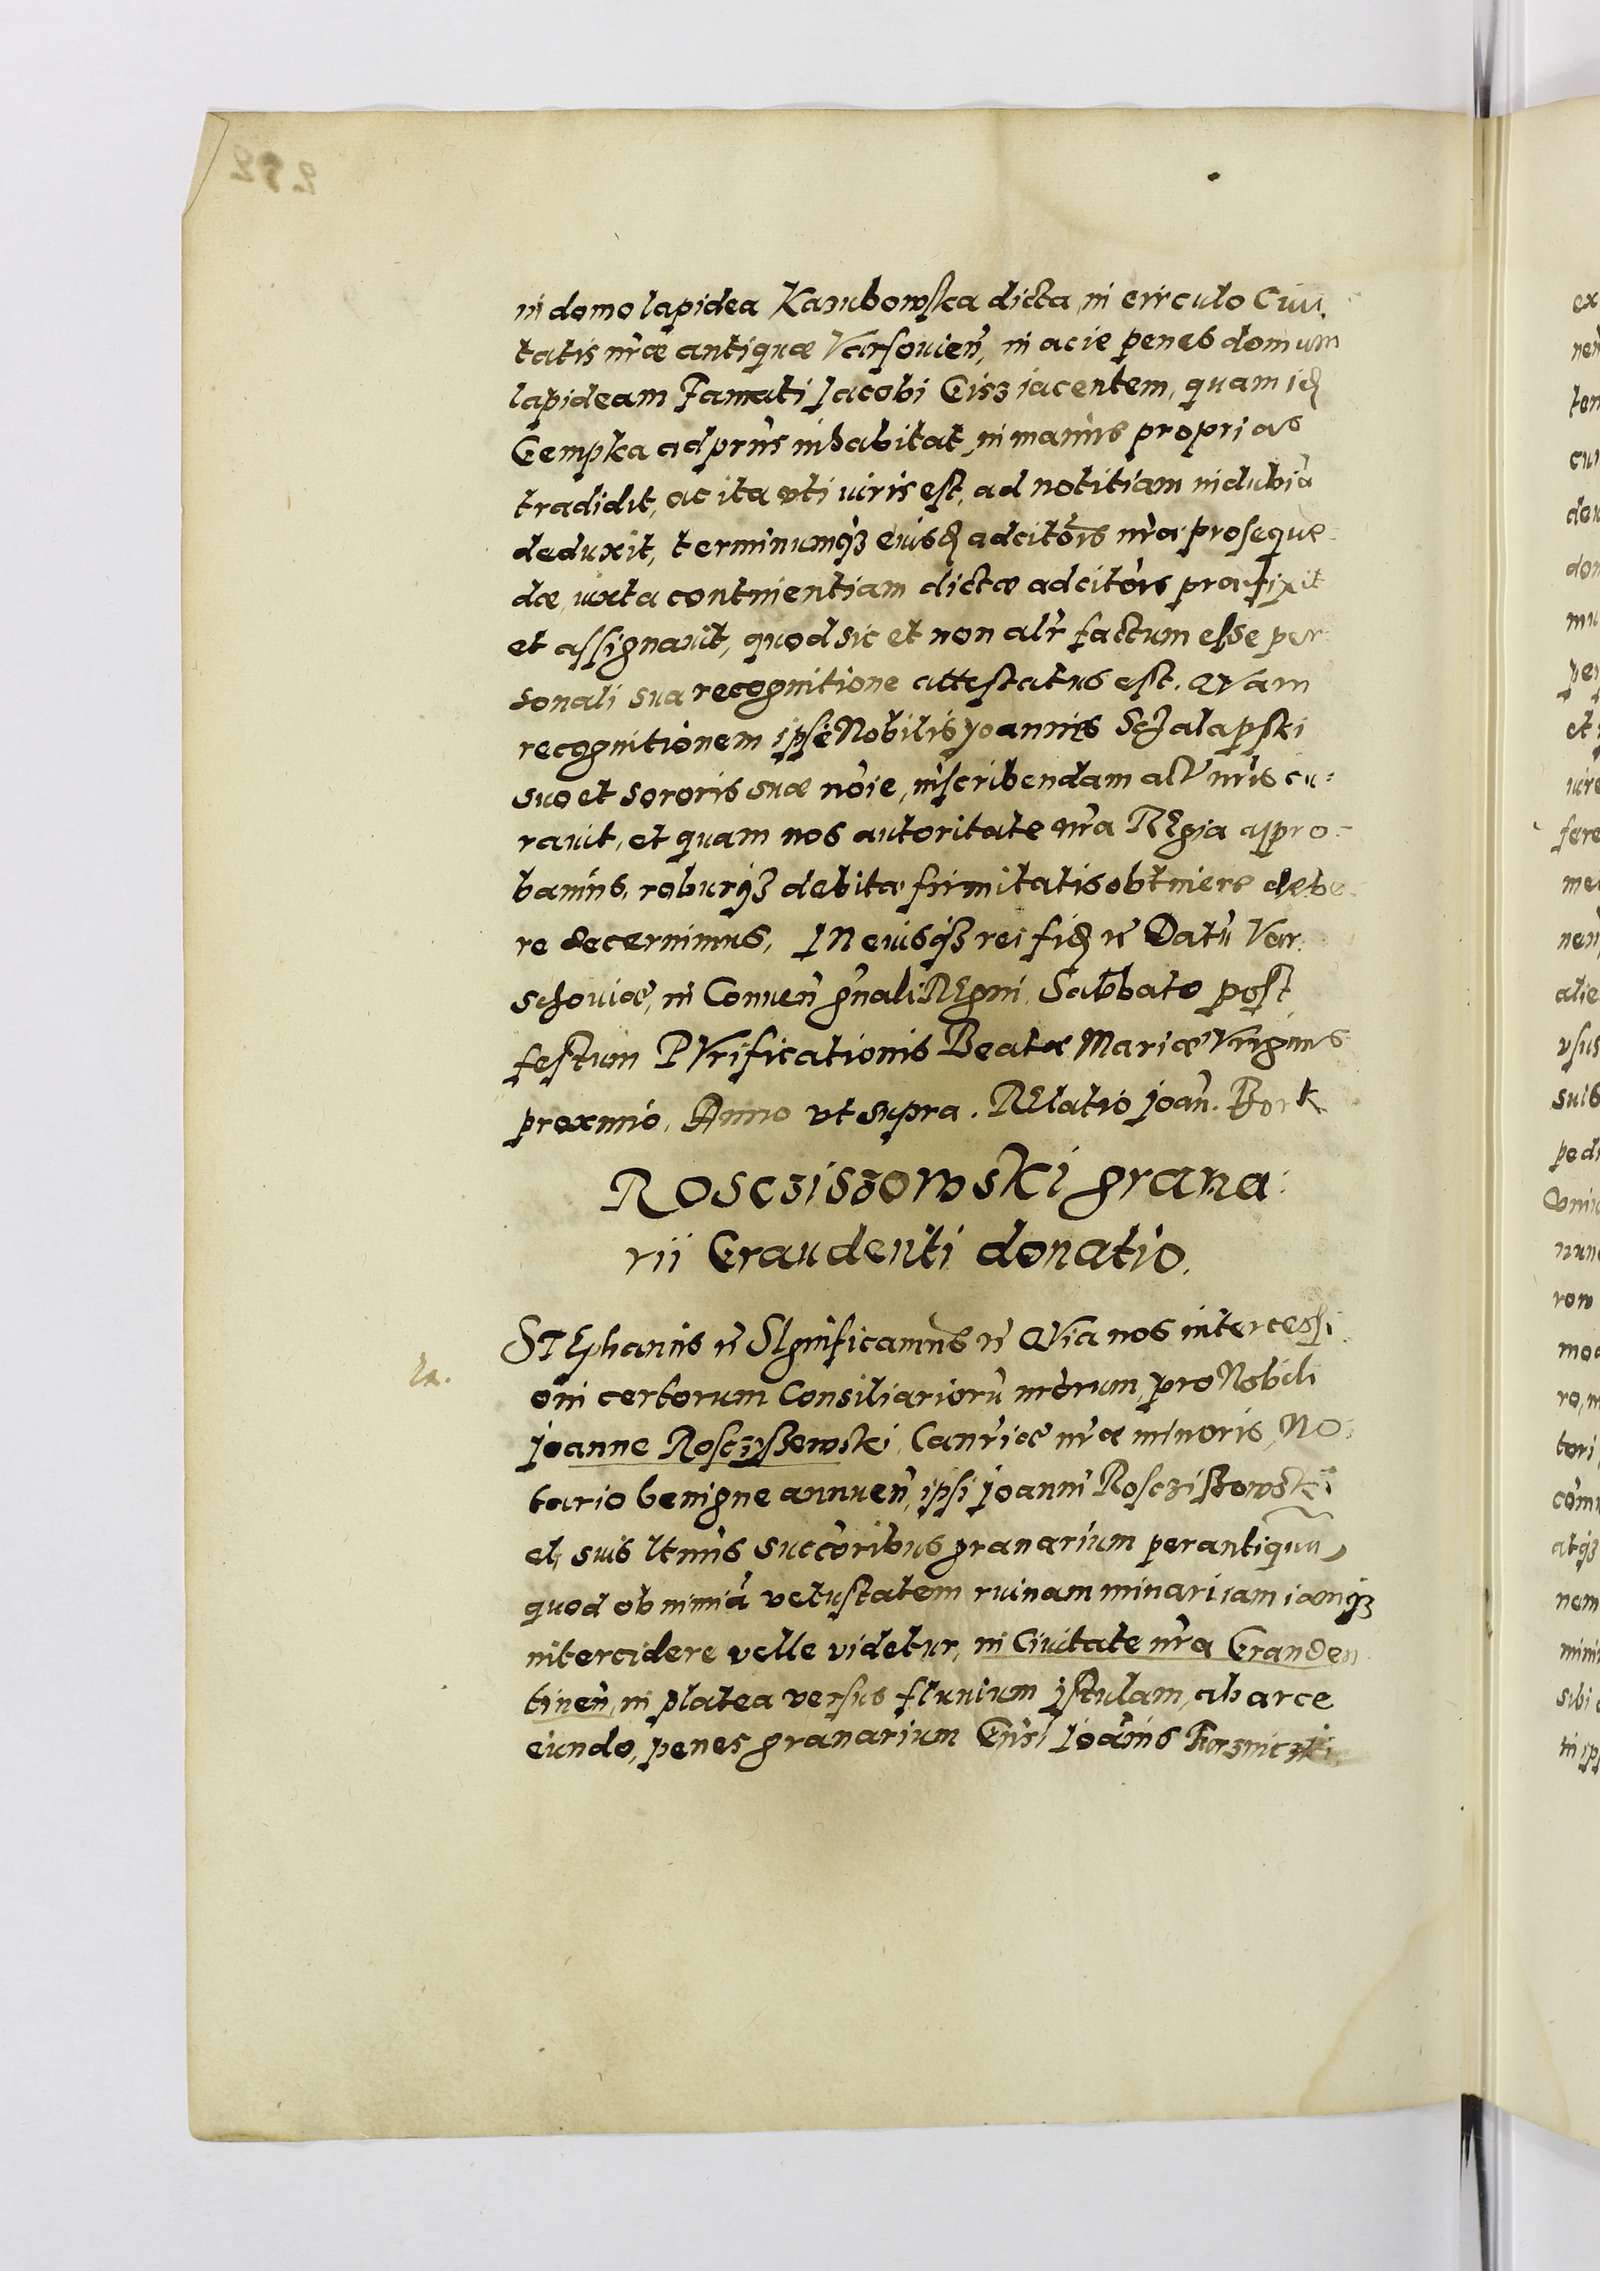 in domo lapidea Kazubowska dicta, in circulo Ciui
tatis nr̃æ antiquæ Varsouien̄, in acie penes domum
lapideam Famati Jacobi Gisz iacentem, quam id̃
Gempka adpr̃ns inhabitat, in manus proprias
tradidit, ac ita vti iuris est, ad notitiam indubiã
deduxit, terminumq3 eiusd̃ adcitõis nr̃æ proseque
dæ, iuxta continentiam dictæ adcitõis præfixit
et assignauit, quod sic et non alr̃ factum esse per
sonali sua recognitione attestatus est. QVam
recognitionem ipse Nobilis Joannes Schalapski
suo et sororis suæ noĩe, inscribendam actis nr̃is cu:
rauit, et quam nos autoritate nr̃a REgia appro:
bamus, roburq3 debitæ firmitatis obtinere debe
re decernimus, IN cuiusq3 rei fid̃ &c Datũ Var
schouiæ, in Conuen̄ gñali REgni, Sabbato post
festum PVrificationis Beatæ Mariæ Virginis
proximo, Anno vt supra. RElatio Joan̄. Bork
Rosczisзowski grana:
rii Graudenti donatio.
STEphanus &c SIgnificamus &c QVia nos intercessi
oni certorum Consiliariorũ nrõrum, pro Nobili
Joanne Rosczyszewski, Canriæ nr̃æ minoris, No:
tario benigne annuen̄, ipsi Joanni Rosczissowski
et suis ltimis succõribus granarium perantiquũ,
quod ob nimiã vetustatem ruinam minari iam iamq3
intercidere velle videtur, in Ciuitate nr̃a Grauden
tinen̄, in platea versus fluuium Istulam, ab arce
eundo, penes granarium Gñsi Joannis